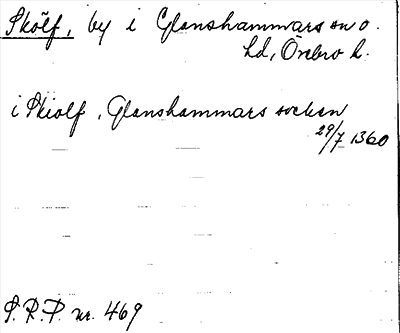 Skölf, by i Glanshammars sn o.
hd, Örebro l.
i Skiolf, Glanshammars socken
29/7 1360
S.R.P. nr. 469